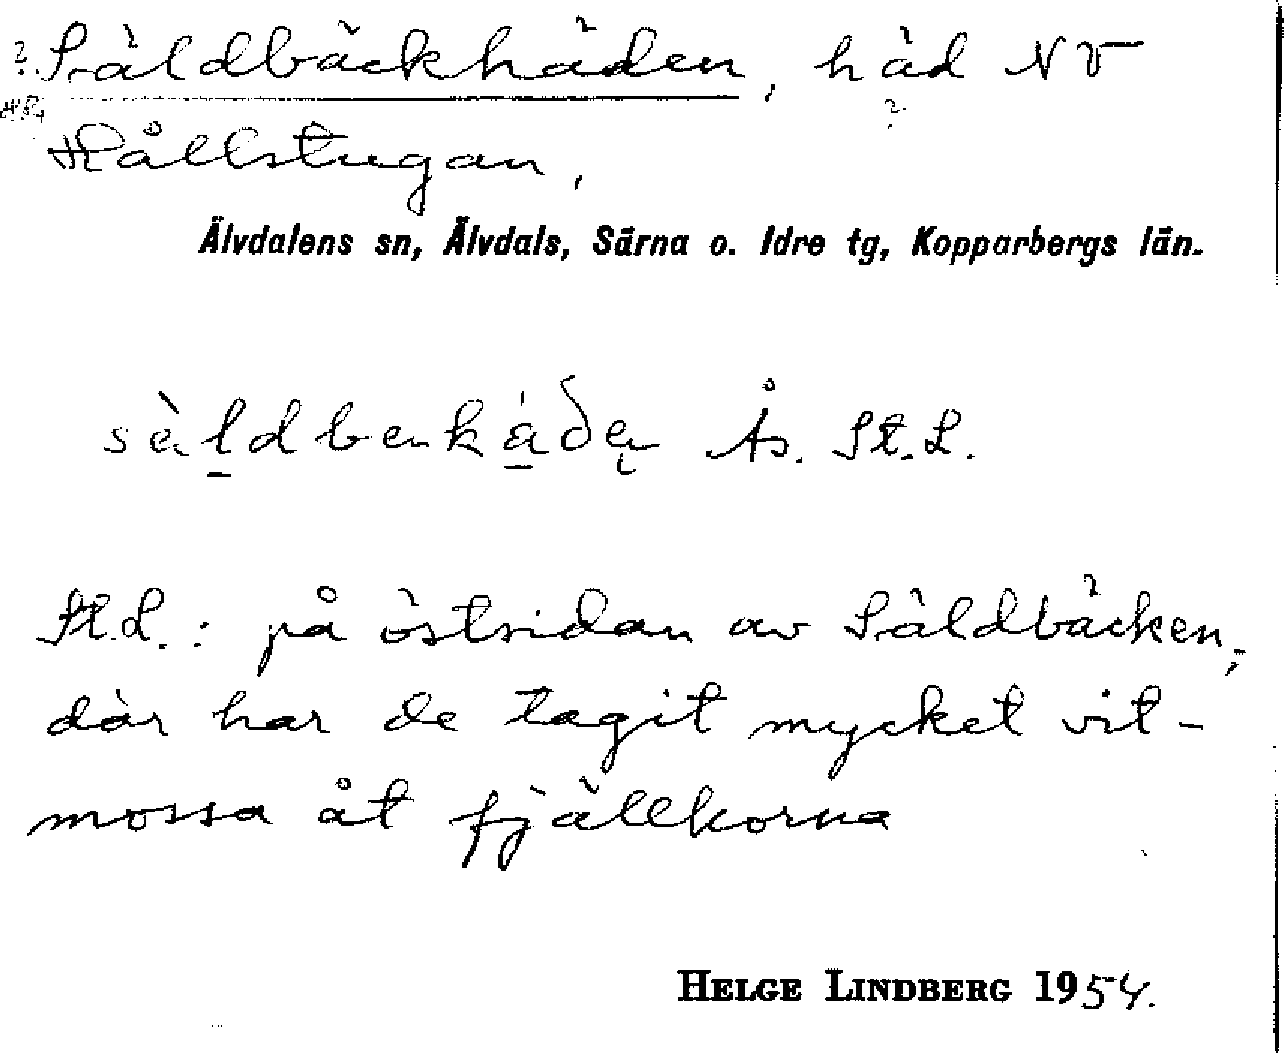 ? Säldbäckhäden, häd NV
Hållstugan,
Älvdalens sn, Älvdals, Särna o. Idre tg, Kopparbergs län.
sàldbenkáðen Ås. St.L.
St.L.: på östsidan av Säldbäcken,
där har de tagit mycket vit-
mossa åt fjällkorna
HELGE LINDBERG 1954.